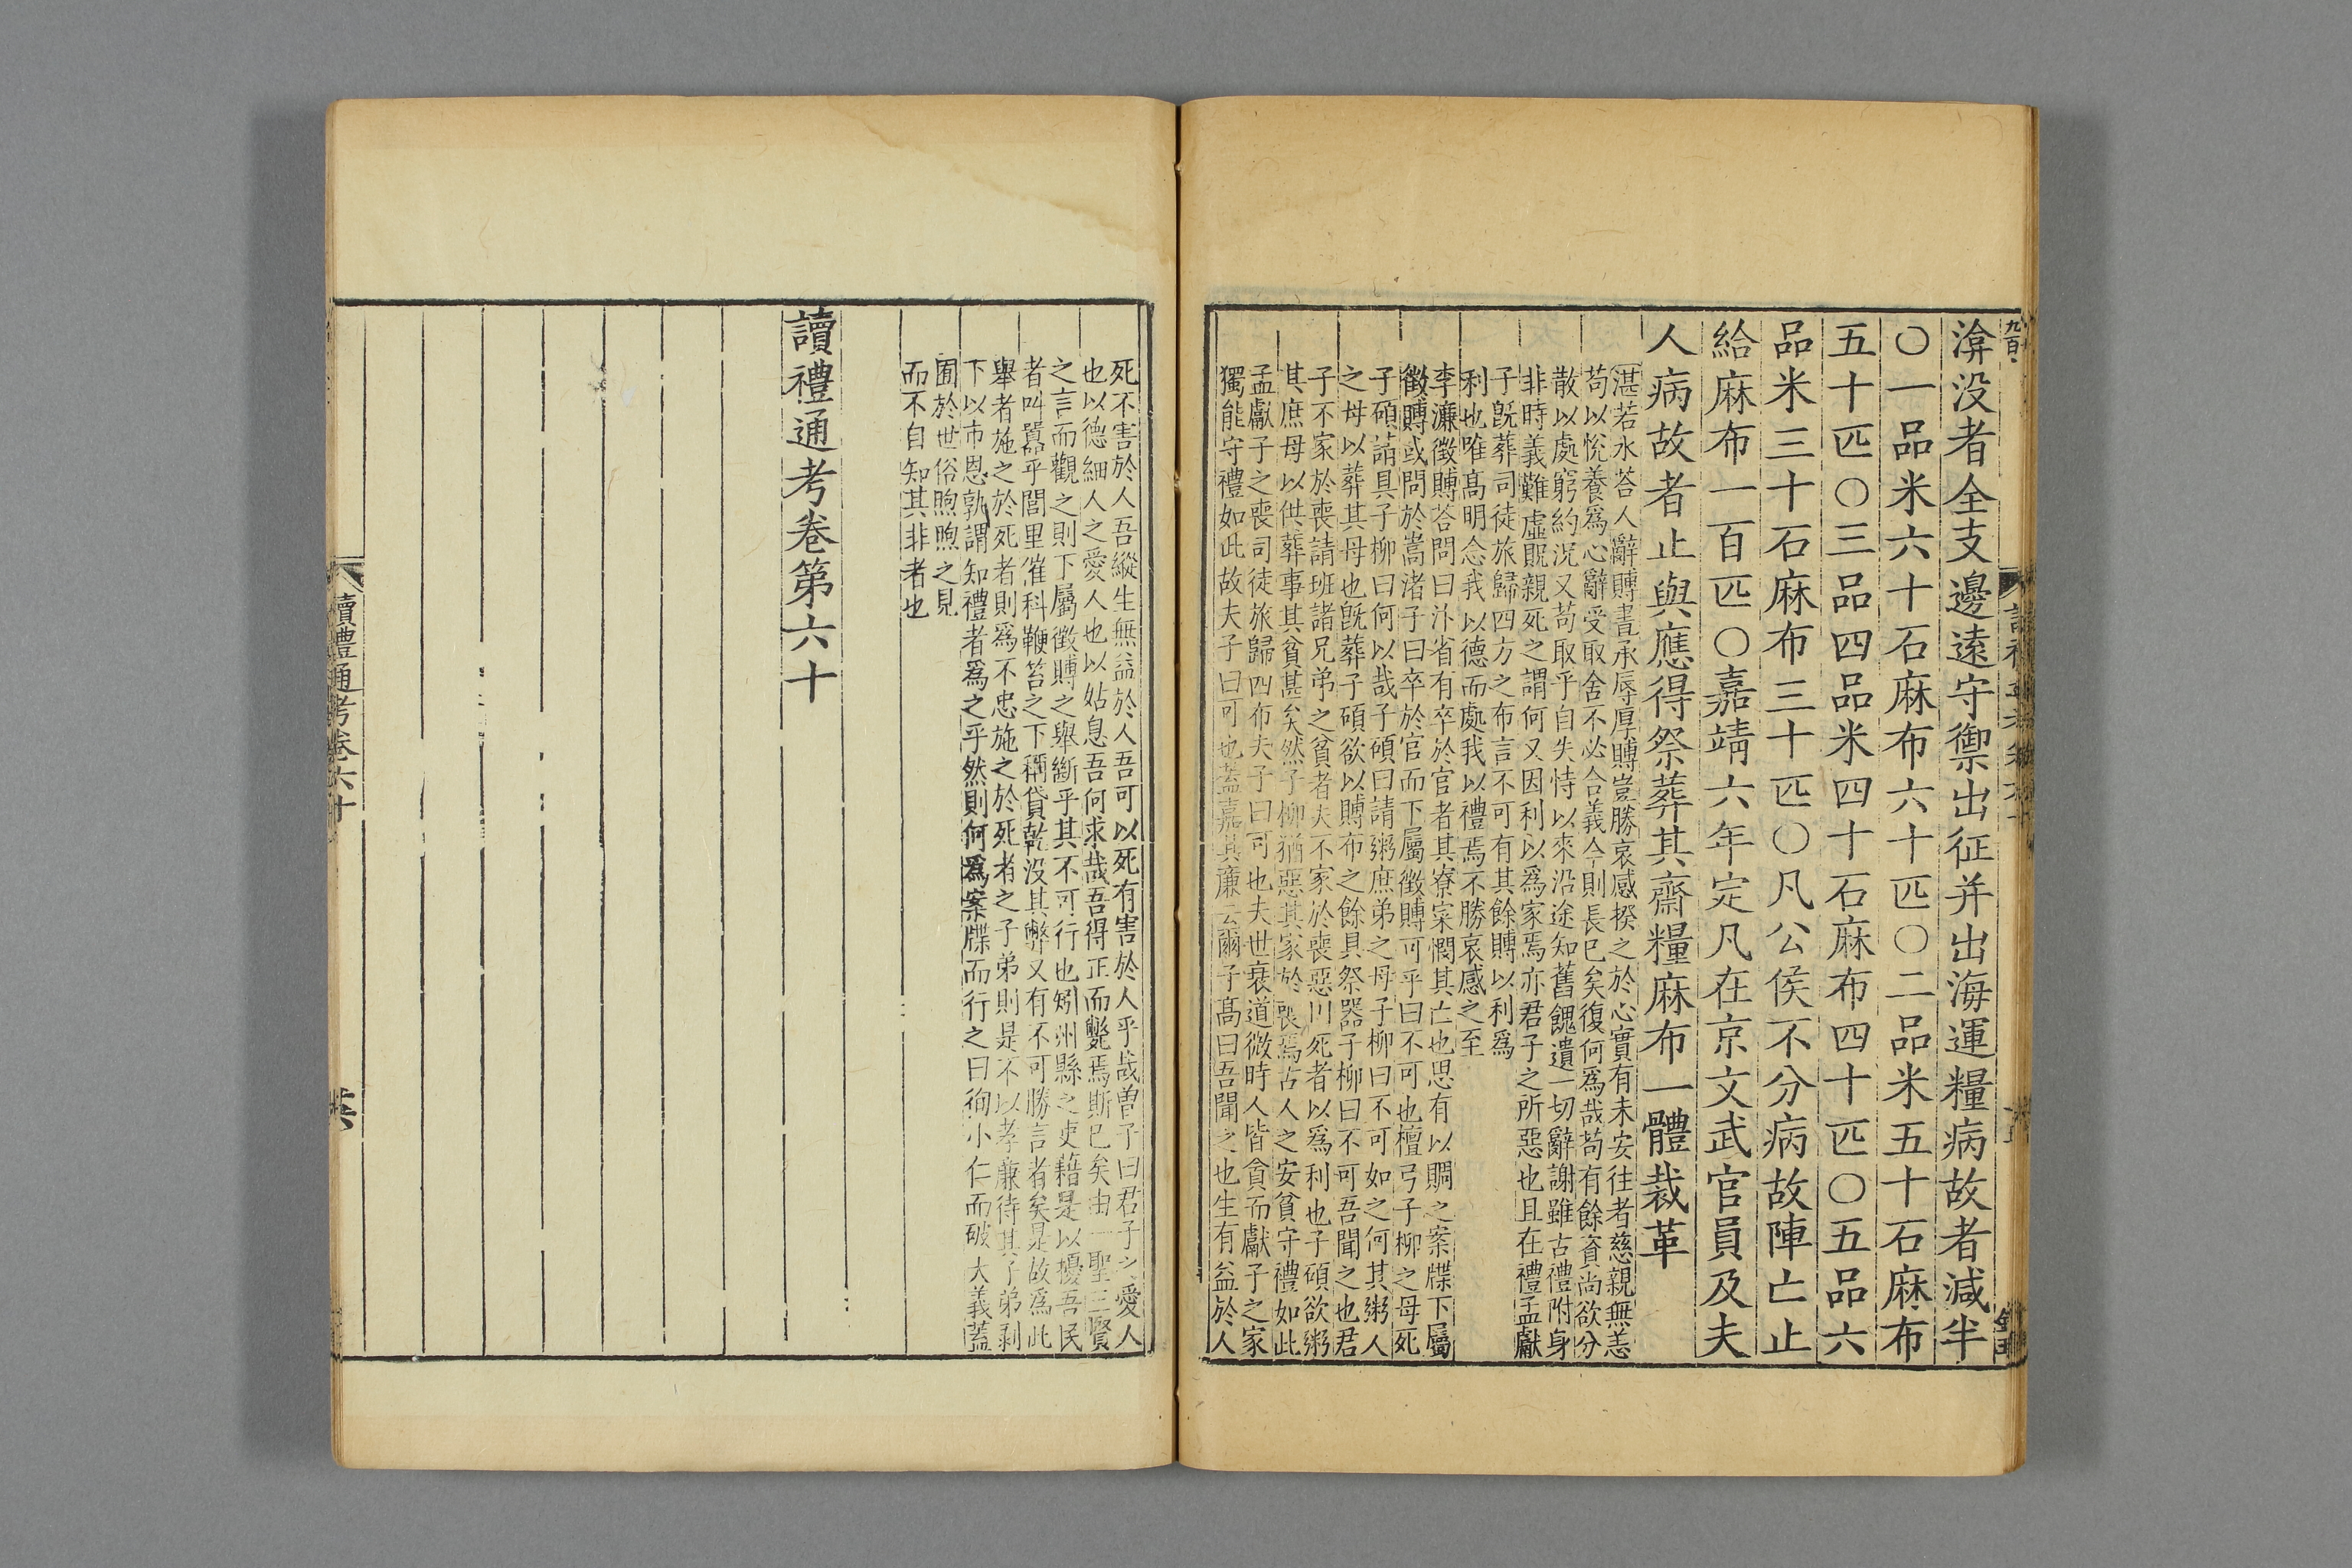 渰没者全支邊遠守禦出征并出海運糧病故者減半
〇一品米六十石麻布六十匹〇二品米五十石麻布
五十匹〇三品四品米四十石麻布四十匹〇五品六
品米三十石麻布三十匹〇凡公侯不分病故陣亡止
給麻布一百匹〇嘉靖六年定凡在京文武官員及夫
人病故者止與應得祭葬其齋糧麻布一體裁革
湛若水荅人辭賻書承辱厚賻豈勝哀感揆之於心實有未安往者慈親無恙
苟以悅養爲心辭受取舍不必合義今則長已矣復何爲哉苟有餘資尚欲分
散以處窮約況又苟取乎自失恃以來沿途知舊餽遺一切辭謝雖古禮附身
非時義難虛貺親死之謂何又因利以爲家焉亦君子之所惡也且在禮孟獻
子旣葬司徒旅歸四方之布言不可有其餘賻以利爲
利也唯高明念我以德而處我以禮焉不勝哀感之至
李濂徵賻荅問曰汴省有卒於官者其寮寀憫其亡也思有以賙之案牒下屬
徵賻或問於嵩渚子曰卒於官而下屬徵賻可乎曰不可也檀弓子柳之母死
子碩請具子柳曰何以哉子碩曰請粥庶弟之母子柳曰不可如之何其粥人
之母以葬其母也旣葬子碩欲以賻布之餘具祭器子柳曰不可吾聞之也君
子不家於喪請班諸兄弟之貧者夫不家於喪惡川死者以爲利也子碩欲粥
其庶母以供葬事其貧甚矣然子柳猶惡其家於喪焉古人之安貧守禮如此
孟獻子之喪司徒旅歸四布夫子曰可也夫世衰道微時人皆貪而獻子之家
獨能守禮如此故夫子曰可也蓋嘉其廉云爾子高曰吾聞之也生有益於人
死不害於人吾縱生無益於人吾可以死有害於人乎哉曾子曰君子之愛人
也以德細人之愛人也以姑息吾何求哉吾得正而斃焉斯已矣由一聖三賢
之言而觀之則下屬徵賻之舉斷乎其不可行也矧州縣之吏藉是以擾吾民
者叫囂乎閭里催科鞭笞之下稱貸乾没其弊又有不可勝言者矣是故爲此
舉者施之於死者則爲不忠施之於死者之子弟則是不以孝廉待其子弟剥
下以市恩孰謂知禮者爲之乎然則何爲案牒而行之曰徇小仁而破大義蓋
囿於世俗煦煦之見
而不自知其非者也
讀禮通考卷第六十
讀禮通考卷六十